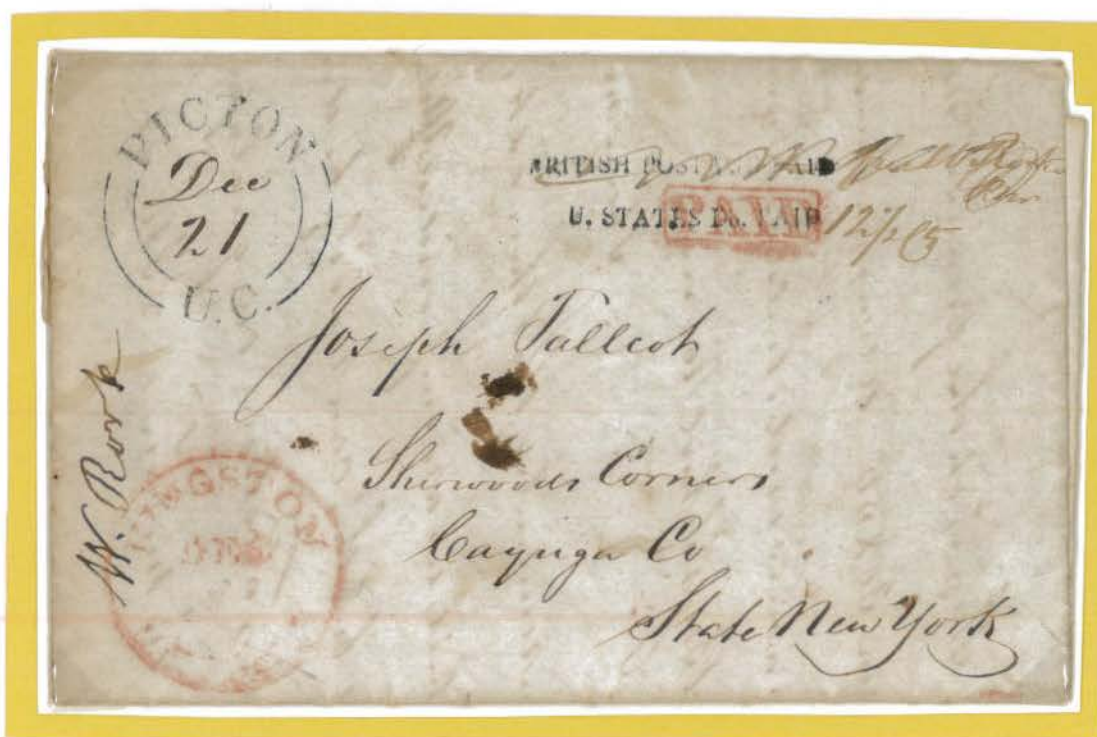 PICTON
Dec
21
U.C.
BRITISH POSTAGE PAID
U. STATES Do. PAID
PAID
12½
Joseph Tallcot
Sherwoods Corners
Cayuga Co
State New York
W. Rork
KINGSTON